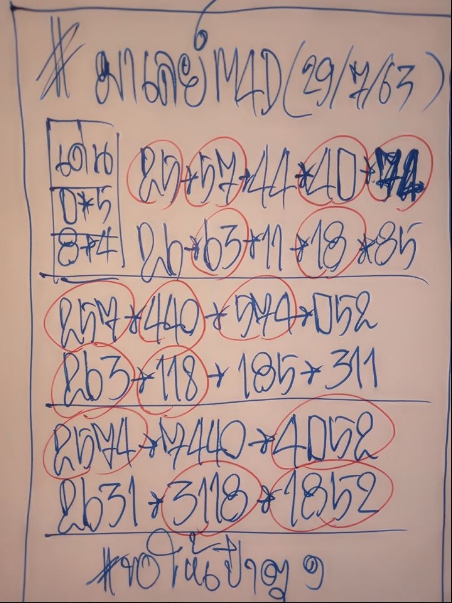 # มาเลย์ M4D (29/7/63)
เด่น
0*5
8*4
25*57*44*40*74
26*63*11*18*85
257*440*574*052
263*118*185*311
2574*7440*4052
2631*3118*1852
#ขอให้